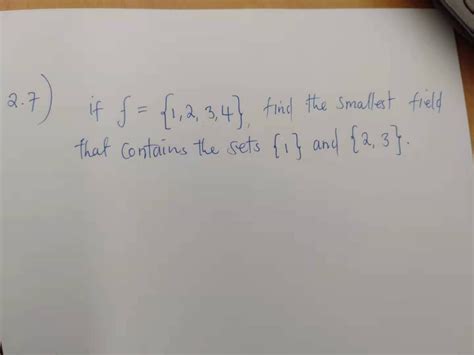 2.7) if f = {1, 2, 3, 4}, find the smallest field
that contains the sets {1} and {2, 3}.